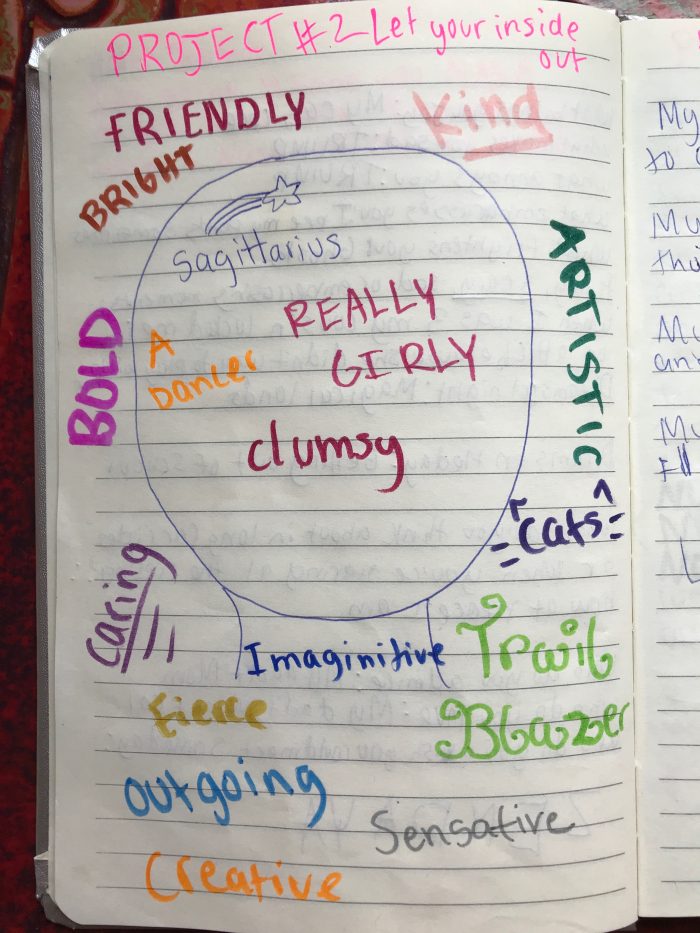 PROJECT #2 Let your inside
out
FRIENDLY
Kind
BRIGHT
Sagittarius
ARTISTIC
REALLY
GIRLY
BOLD
A
Dancer
clumsy
Cats
Caring
Imaginitive
Trail
Blazer
Fierce
Outgoing
Sensative
Creative
My
to
My
thi